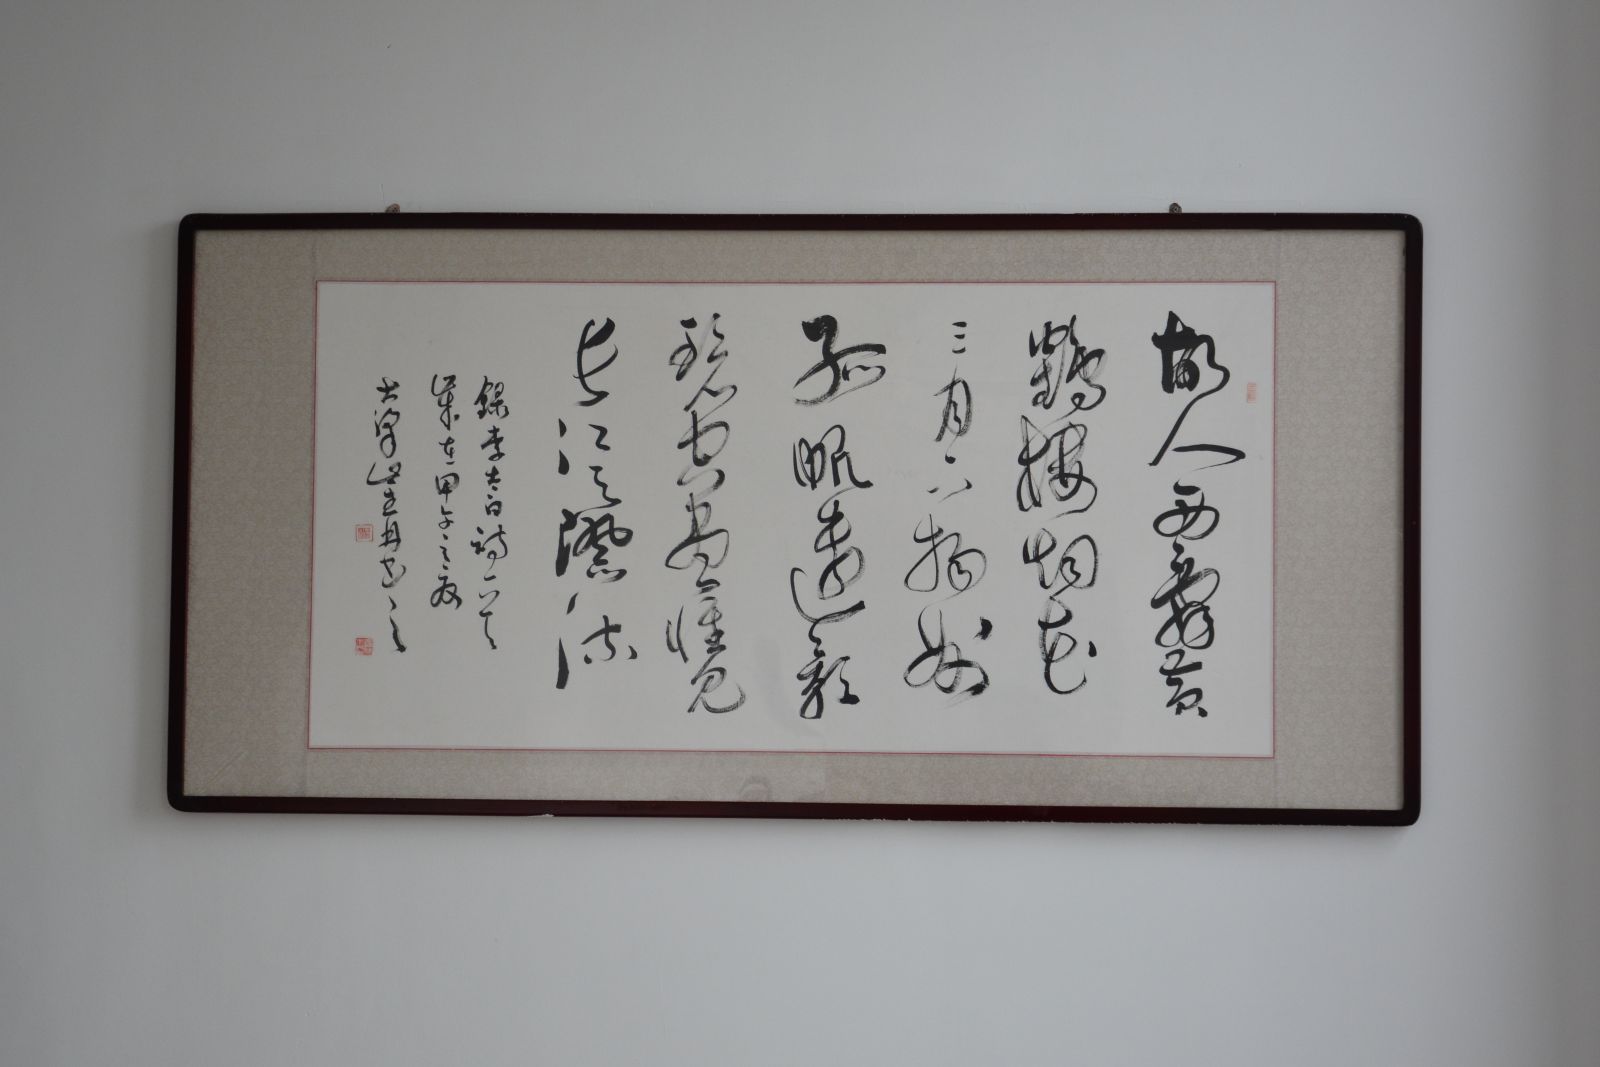 故人西辞黄
鹤楼烟花
三月下扬州
孤帆远影
碧空尽惟见
长江天际流
録李太白詩一首
岁在甲午之夏
书之